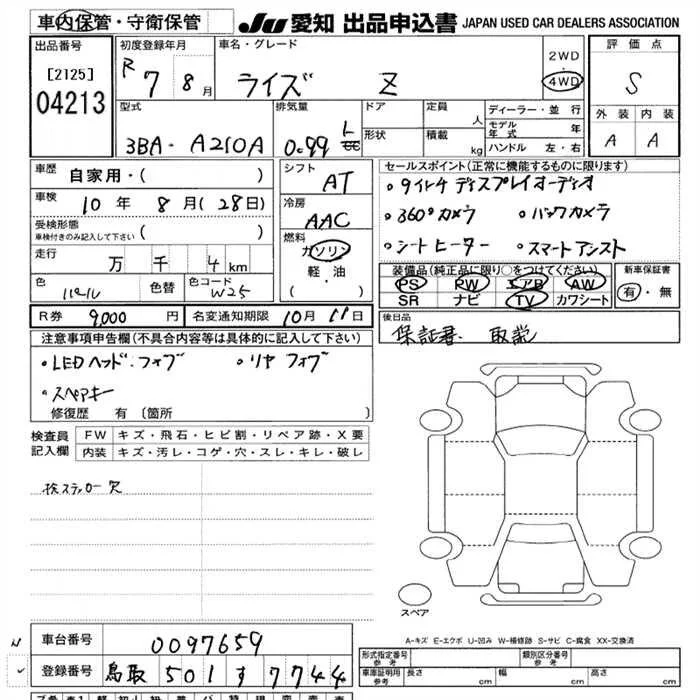 車内保管・守衛保管
JU 愛知 出品申込書 JAPAN USED CAR DEALERS ASSOCIATION
出品番号
[2125]
04213
初度登録年月
R 7 8月
車名・グレード
ライズ Z
2WD
・
4WD
評価点
S
外装 内装
A A
型式
3BA-A210A
排気量
0.99 L
cc
ドア
形状
定員 人
積載 kg
ディーラー・並行
モデル年式 年
ハンドル 左・右
車歴
自家用・( )
車検
10年 8月(28日)
受検形態
車検付きのみ記入して下さい ( )
走行
万 千 4 km
色
パール
色替
色コード
W25
シフト
AT
冷房
AAC
燃料
ガソリン
軽・油
( ・ )
セールスポイント(正常に機能するものに限ります)
・9インチ ディスプレイオーディオ
・360°カメラ ・バックカメラ
・シートヒーター ・スマートアシスト
装備品(純正品に限り○をつけてください)
PS PW エアB AW
SR ナビ TV カワシート
新車保証書
有・無
R券 9,000 円 名変通知期限 10月 日
後日品
保証書. 取説
注意事項申告欄(不具合内容等は具体的に記入して下さい)
・LEDヘッド・フォグ ・リヤフォグ
・スペアキー
修復歴 有 〔箇所 〕
検査員
記入欄
FW キズ・飛石・ヒビ割・リペア跡・X要
内装 キズ・汚レ・コゲ・穴・スレ・キレ・破レ
スペア
A-キズ E-エクボ U-凹み W-補修跡 S-サビ C-腐食 XX-交換済
車台番号 0097659
登録番号 鳥取 501 す 7744
形式指定番号
参考
類別区分番号
参考
車庫証明用
参考
長さ cm 幅 cm 高さ cm